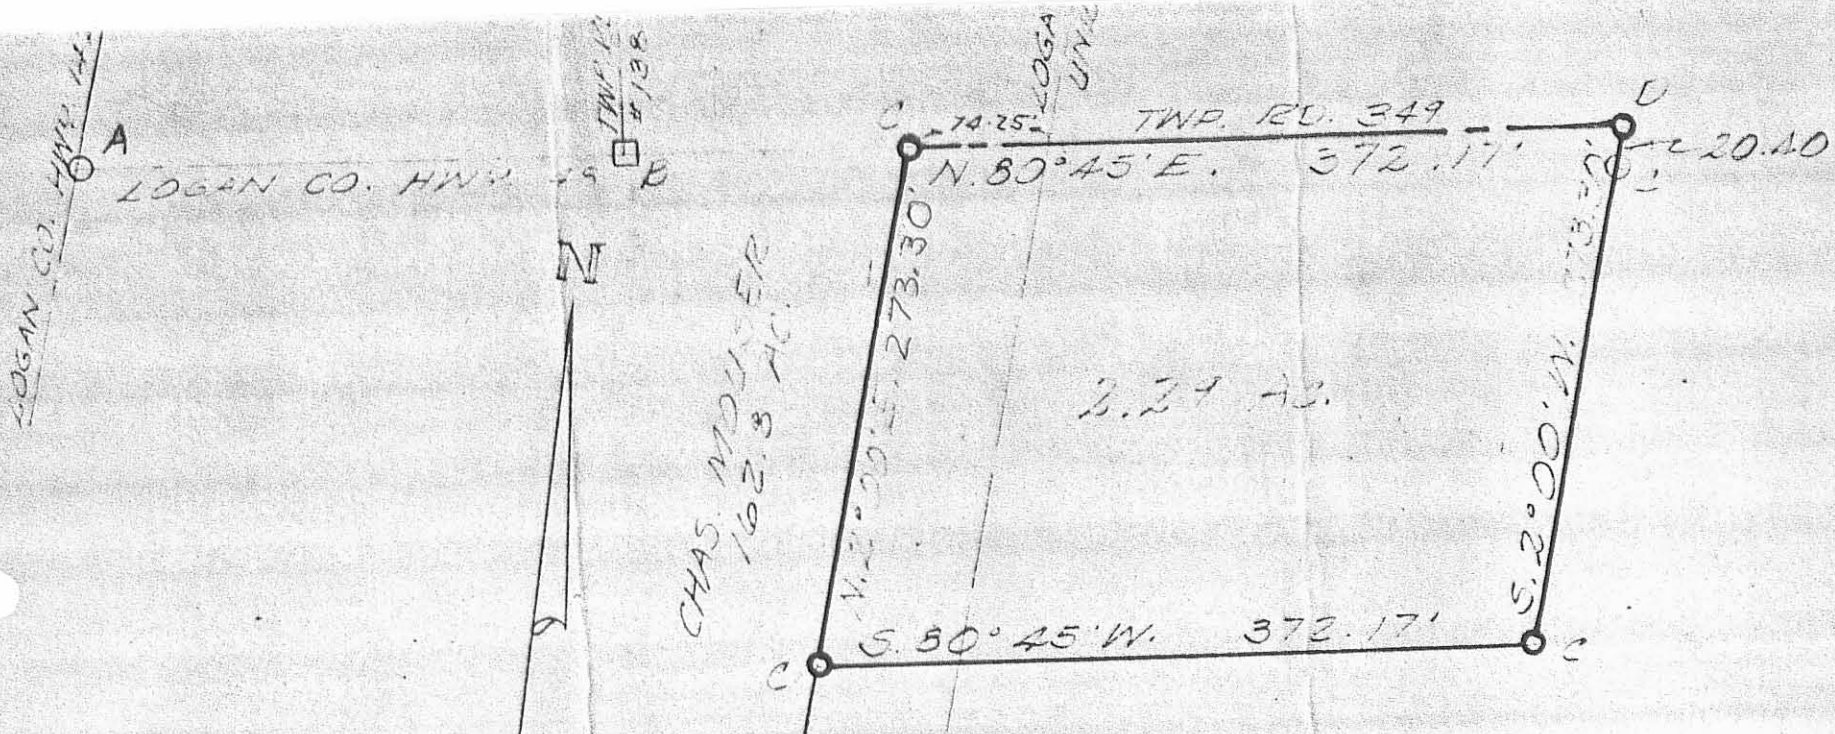 LOGAN CO. HWY. 14
A
LOGAN CO. HWY. 49
TWP. R
# 138
B
N
CHAS. MOUSER
162.3 AC.
LOGA
UNI
C
74.25'
TWP. RD. 349
D
N. 80° 45' E. 372.17'
20.40
N. 2° 00' E. 273.30'
2.29 AC.
S. 2° 00' W.
S. 80° 45' W. 372.17'
C
C